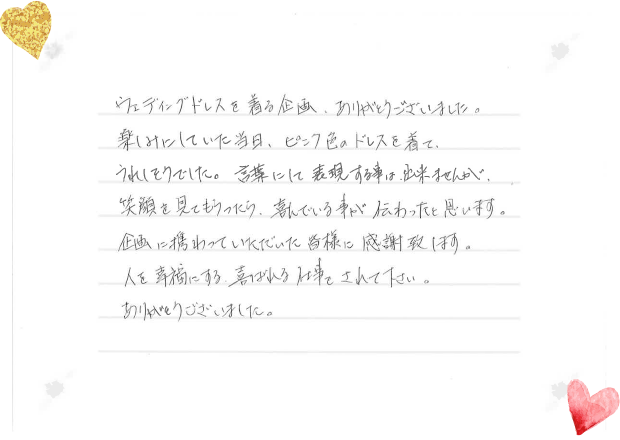 ウェディングドレスを着る企画、ありがとうございました。
楽しみにしていた当日、ピンク色のドレスを着て、
うれしそうでした。言葉にして表現する事は出来ませんが、
笑顔を見てもらったら、喜んでいる事が伝わったと思います。
企画に携わっていただいた皆様に感謝致します。
人を幸福にする、喜ばれる仕事をされて下さい。
ありがとうございました。